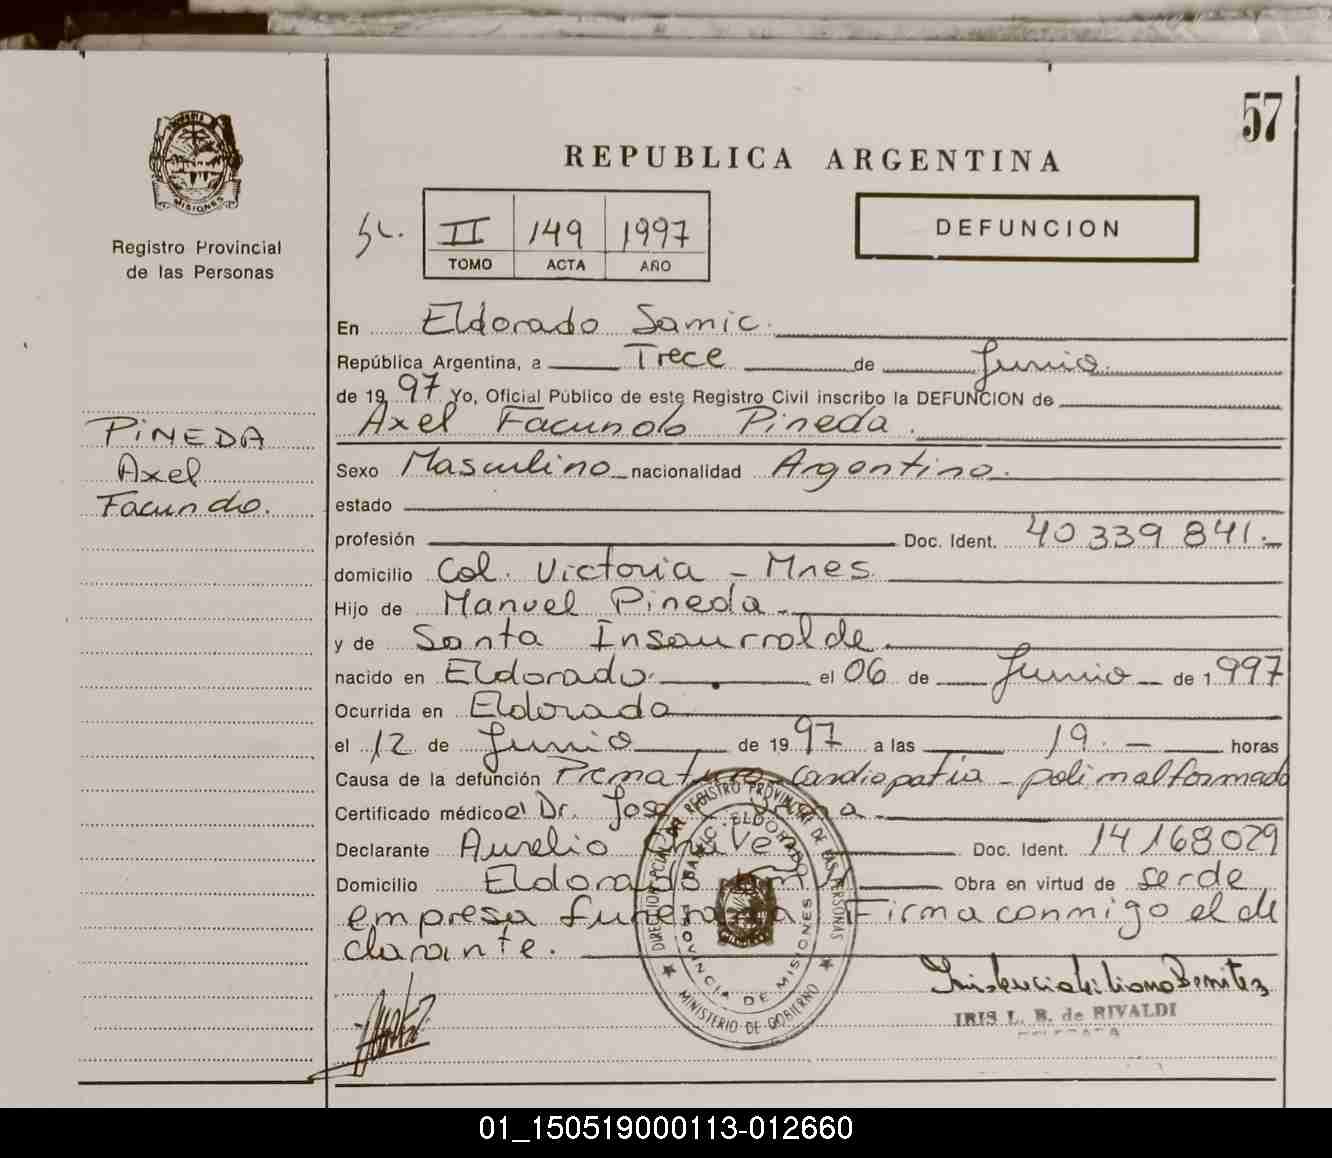 57
REPUBLICA ARGENTINA
MISIONES
Registro Provincial
de las Personas
II 149 1997
TOMO ACTA AÑO
DEFUNCION
En Eldorado Samic.
República Argentina, a Trece de Junio
de 1997 Yo, Oficial Público de este Registro Civil inscribo la DEFUNCION de
Axel Facundo Pineda.
PINEDA
Axel
Facundo.
Sexo Masculino nacionalidad Argentino.
estado
profesión Doc. Ident. 40339841.-
domicilio Col. Victoria - Mnes
Hijo de Manuel Pineda
y de Santa Insaurralde
nacido en Eldorado. el 06 de Junio de 1997
Ocurrida en Eldorado
el 12 de Junio de 1997 a las 19.- horas
Causa de la defunción Prematuro - Cardiopatia - polimalformado
Certificado médico el Dr. Jose
Declarante Aurelio Doc. Ident. 14168029
Domicilio Eldorado Obra en virtud de ser de
empresa funeraria. Firma conmigo el de
clarante.
DEL REGISTRO PROVINCIAL DE LAS PERSONAS
MINISTERIO DE GOBIERNO
SAMIC - ELDORADO
PROVINCIA DE MISIONES
IRIS L. B. de RIVALDI
DELEGADA
01_150519000113-012660